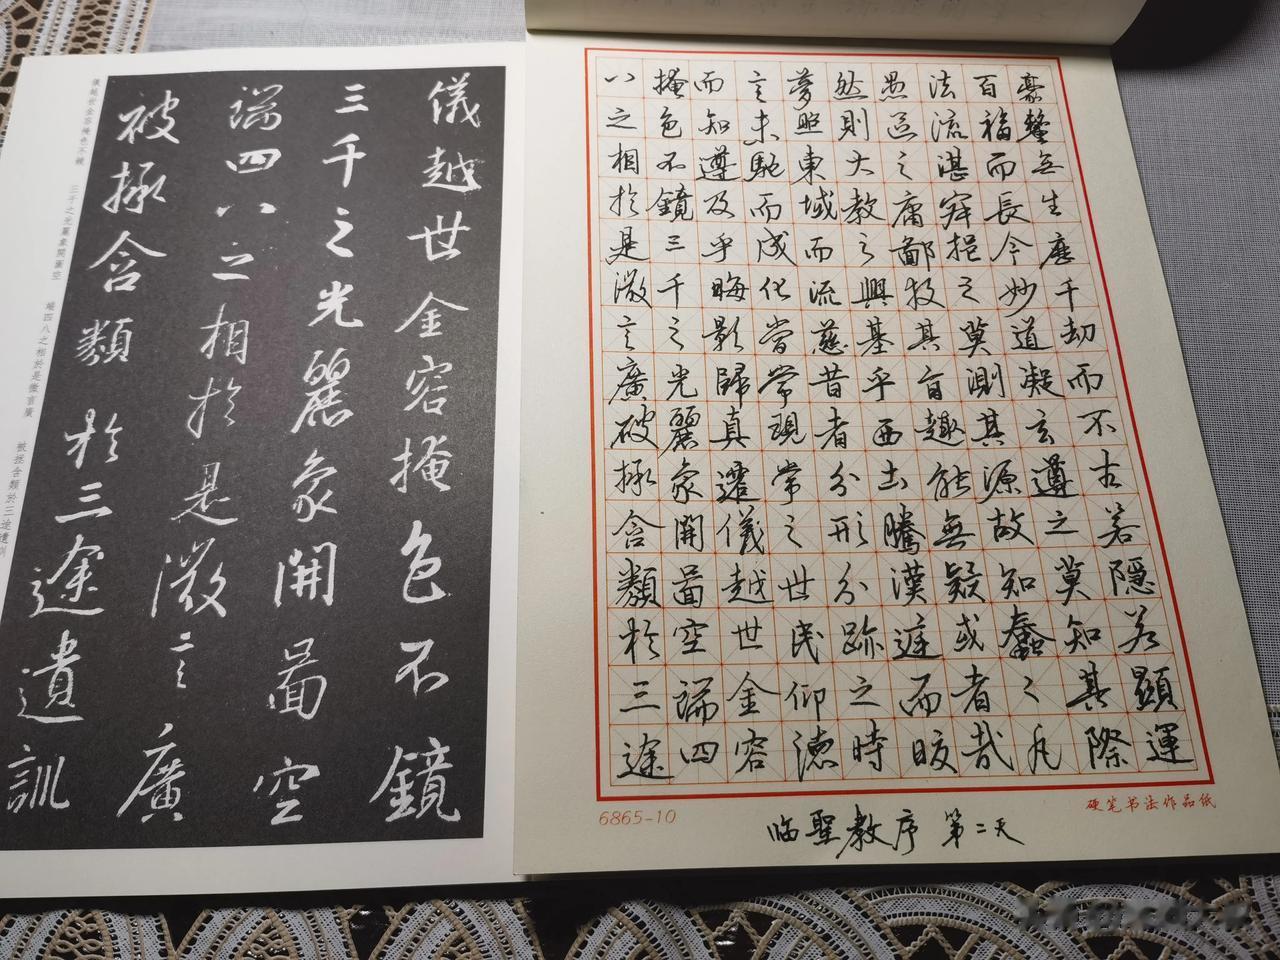 儀越世金容掩色不鏡
三千之光麗象開圖空
端四八之相於是微言廣
被拯含類於三途遺訓
儀越世金容掩色不鏡
三千之光麗象開圖空
端四八之相於是微言廣
被拯含類於三途遺訓
豪釐无生歷千劫而不古若隱若顯運
百福而長今妙道凝玄遵之莫知其際
法流湛寂挹之莫測其源故知蠢〻凡
愚區〻庸鄙投其旨趣能無疑或者哉
然則大教之興基乎西土騰漢庭而皎
夢照東域而流慈昔者分形分跡之時
言未馳而成化當常現常之世民仰德
而知遵及乎晦影歸真遷儀越世金容
掩色不鏡三千之光麗象開圖空端四
八之相於是微言廣被拯含類於三途
6865-10
硬笔书法作品纸
临聖教序 第二天